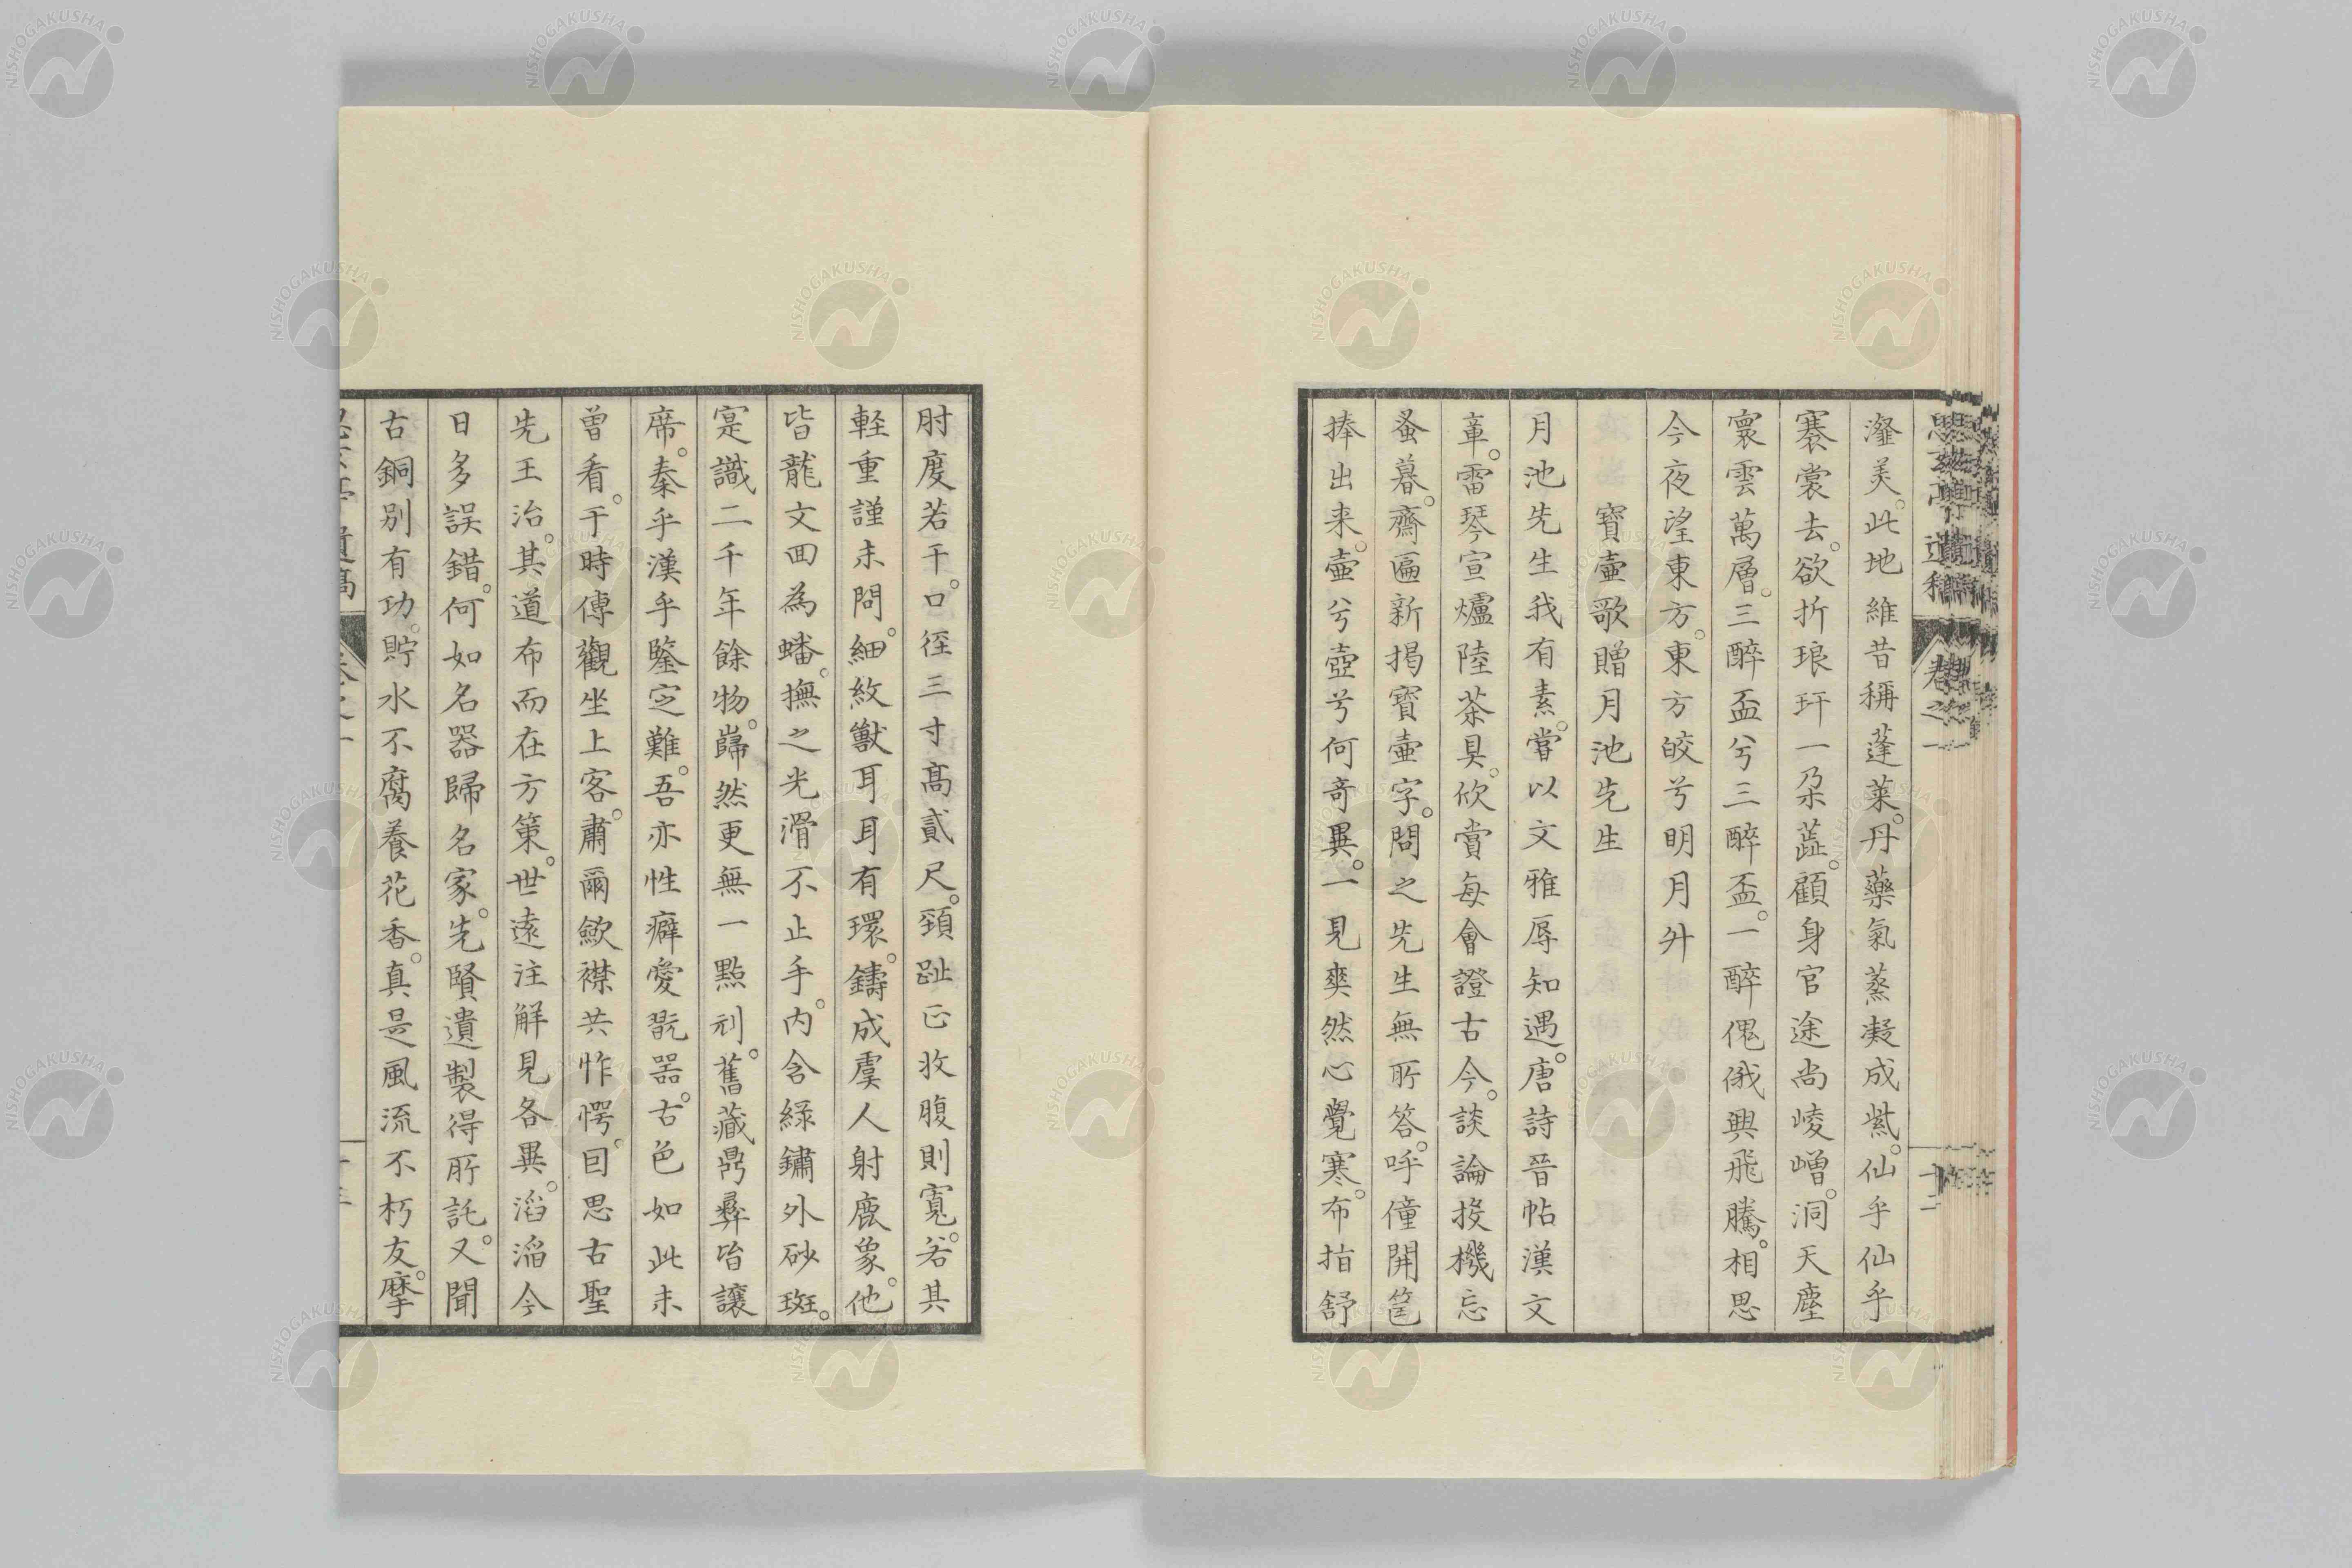 灩美。此地維昔稱蓬萊。丹藥氣蒸凝成紫。仙乎仙乎
褰裳去。欲折琅玕一朶蕋。顧身官途尚崚嶒。洞天塵
寰雲萬層。三醉盃兮三醉盃。一醉傀俄興飛騰。相思
今夜望東方。東方皎兮明月升
寶壷歌贈月池先生
月池先生我有素。嘗以文雅辱知遇。唐詩晉帖漢文
章。雷琴宣爐陸茶具。欣賞每會證古今。談論投機忘
蚤暮。齋匾新掲寶壷字。問之先生無所答。呼僮開筐
捧出来。壷兮壺兮何奇異。一見爽然心覺寒。布指舒
肘度若干。口径三寸髙貳尺。頸趾正收腹則寛。若其
軽重謹未問。細紋獸耳耳有環。鑄成虞人射鹿象。他
皆龍文囬為蟠。撫之光滑不止手。内含緑鏽外砂斑。
寔識二千年餘物。巋然更無一點刓。舊藏鼎彝皆讓
席。秦乎漢乎鑒定難。吾亦性癖愛翫噐。古色如此未
曽看。于時傳觀坐上客。肅爾歛襟共怍愕。囘思古聖
先王治。其道布而在方策。世逺注解見各異。滔滔今
日多誤錯。何如名器歸名家。先賢遺製得所託。又聞
古銅別有功。貯水不腐養花香。真是風流不朽友。摩
思
遺稿
卷之一
十二